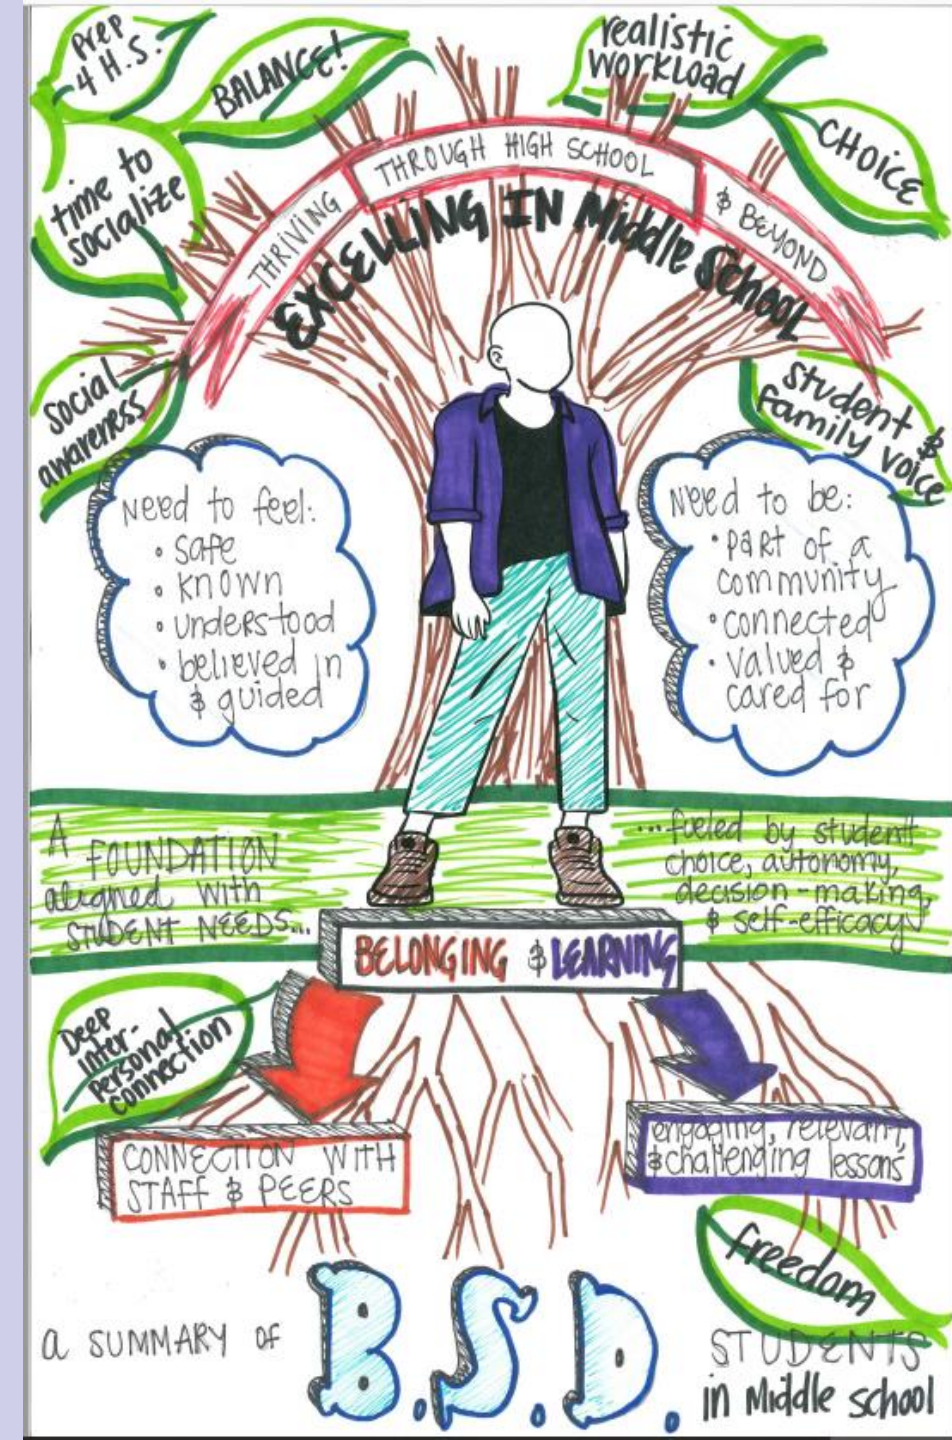 Prep
4 H.S.
BALANCE!
realistic
WORKLOAD
CHOICE
time to
socialize
THRIVING
THROUGH HIGH SCHOOL
& BEYOND
EXCELLING IN Middle School
Social
awareness
Student &
family voice
Need to feel:
• safe
• known
• understood
• believed in
& guided
Need to be:
• part of a
community
• connected
• valued &
cared for
A FOUNDATION
aligned with
STUDENT NEEDS...
...fueled by student
choice, autonomy,
decision-making,
& self-efficacy
BELONGING & LEARNING
Deep
Inter-
Personal
connection
CONNECTION WITH
STAFF & PEERS
engaging, relevant,
& challenging lessons
freedom
a SUMMARY OF
B.S.D.
STUDENTS
in Middle school